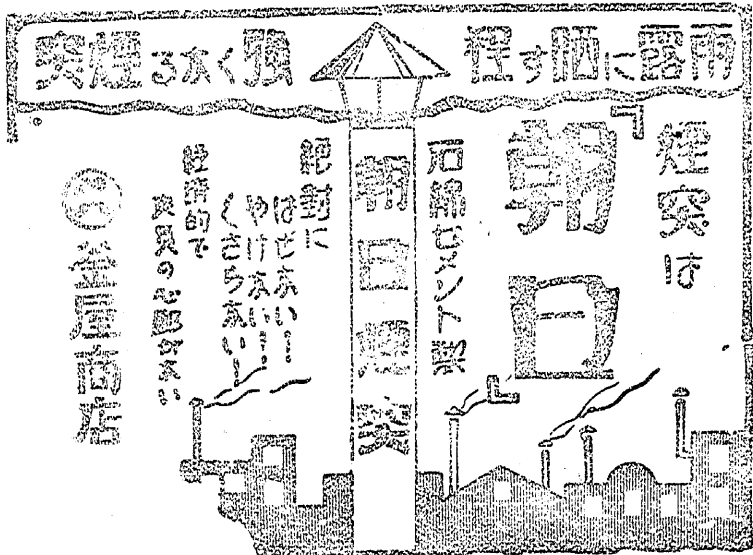 雨露に晒す程強くなる煙突
煙突は
「朝日」
石綿セメント製
朝日煙突
絶対に
はせない!
やけない!!
くさらない!
経済的で
の心配がない
釜屋商店